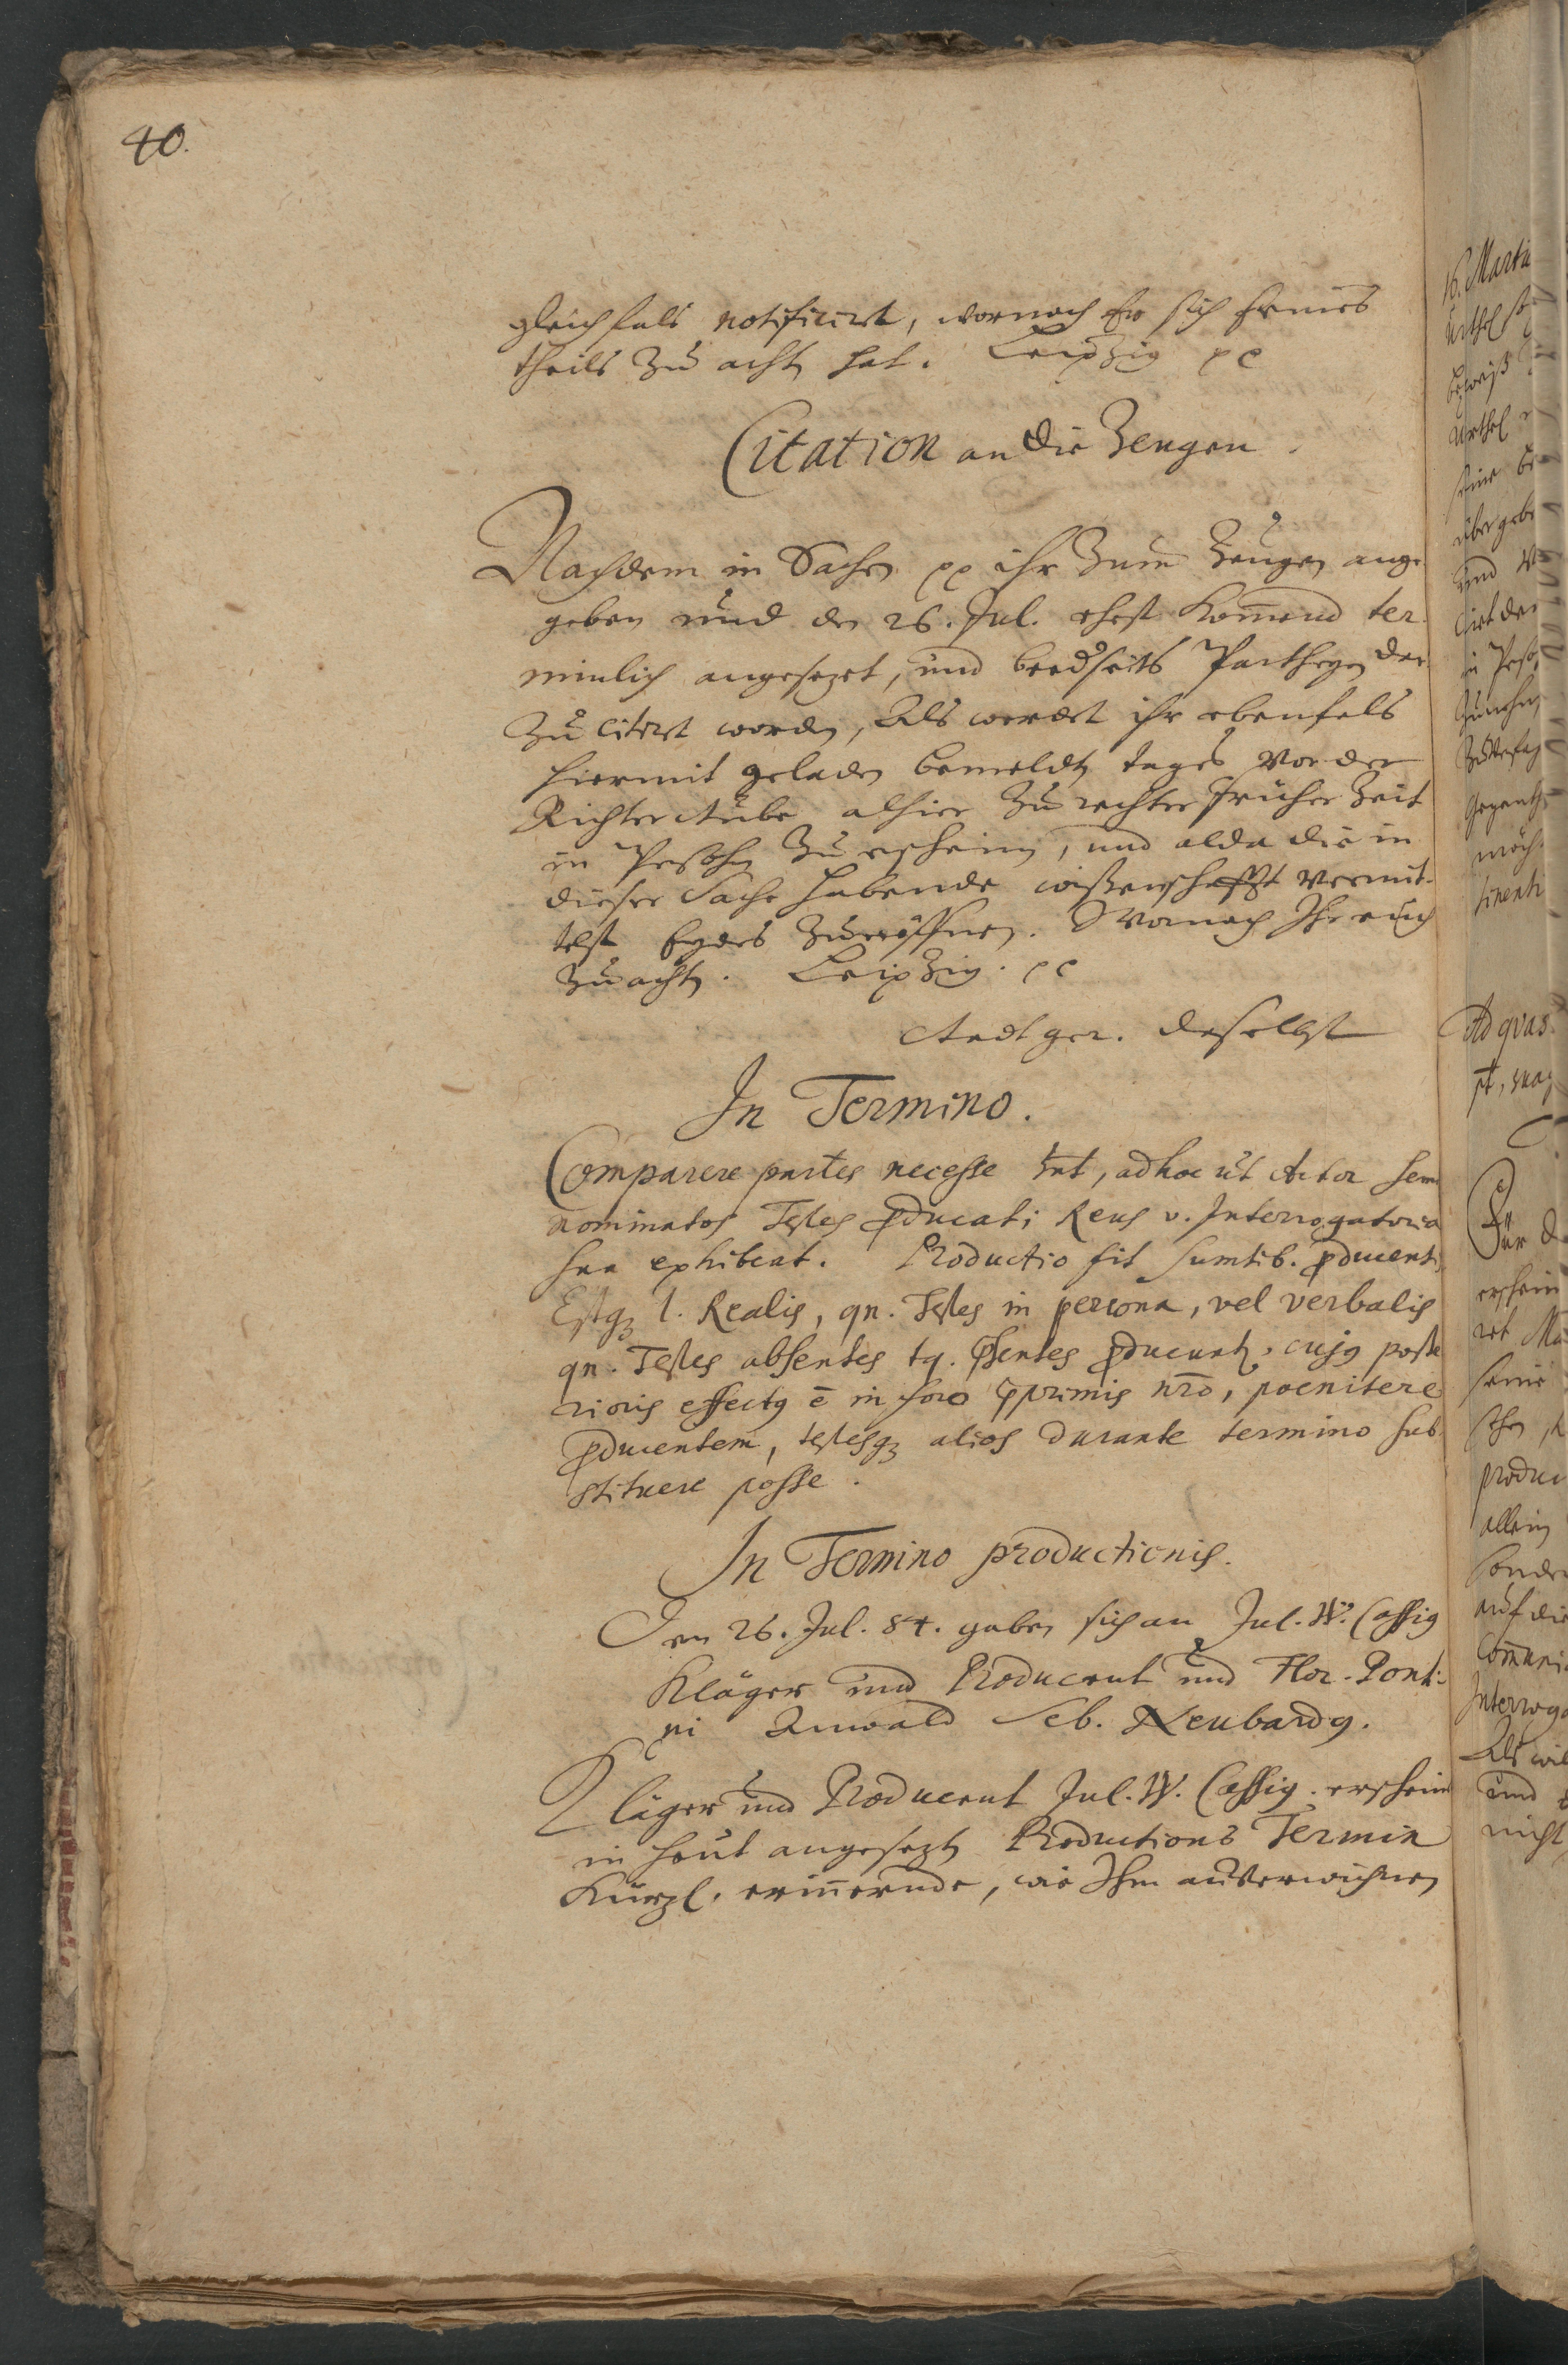 40.
gleichfals notificiret, wornach Er sich seines
theils zu acht hat. Leipzig pp
Citation an die Zeugen.
Nachdem in Sachen pp ihr zum Zeugen ange
geben und der 26. Jul. ehest kom̅end ter
minlich angesezet, und beedseits Partheyen dar
zu citiret worden, Als werdet ihr ebenfals
hiermit geladen bemeldten tages vor der
Richterstube alhier zu rechter früher Zeit
in Persohn zu erscheinen, und alda die in
dieser Sache habende wißenschafft vermit-
telst Eydes zu eröffnen. Wornach Ihr euch
zu achten. Leipzig. pp
Stadtger. daselbst
In Termino.
Comparere partes necesse hnt, ad hoc ut Actor
nominatos Testes ꝓducat; Reus v. Interrogatoria
sua exhibeat. Productio fit sumtib. ꝓducentis
Estqꝫ l. Realis, qn. Testes in persona, vel verbalis
qn. Testes absentes tq. pꝛsentes ꝓducunt, cujꝰ poste
rioris effectꝰ ē in foro nrō, poenitere
ꝓducentem, testesqꝫ alios durante termino sub
stituere posse.
In Termino productionis.
Den 26. Jul. 84. gaben sich an Jul. W. Cassiꝰ
Kläger und Producent und Flor. Ponti-
ni Anwald Seb. Neubardꝰ.
Kläger und Producent Jul. W. Cassiꝰ. erschein
in heut angesezten Productions Termin
Kürzl. erin̅ernde, wie Ihm
16. Marti
Urthel
beweiß
Urthel
seine
übergebe
und
cirt der
in Perso
Zunehm
Gegenth
möch
tinenti
Ad qvas
erschein
ret
seine
produc
allein
sonder
auf die
Com̅uni
Interroga
Als wil
und
nicht